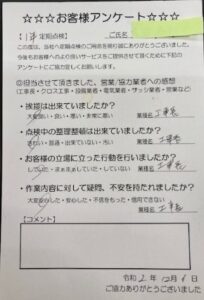 ☆☆☆お客様アンケート☆☆☆
【1年定期点検】 ご氏名
この度は、当社へ定期点検のご用命を賜り誠にありがとうございました。
今後もお客様へのより良いサービスをご提供させて頂くために下記の
アンケートにご協力宜しくお願いします。
◎担当させて頂きました、営業/協力業者への感想
（工事長・クロス工事・設備業者・電気業者・サッシ業者・営業など）
・挨拶は出来ていましたか？
大変良い・良い・悪い・非常に悪い 業種名 工事長
・点検中の整理整頓は出来ていましたか？
きれい・普通・出来ていない・汚い 業種名 工事長
・お客様の立場に立った行動を行いましたか？
していた・まぁまぁしていた・していない 業種名 工事長
・作業内容に対して疑問、不安を持たれましたか？
大変安心した・安心した・不信をもった・信用できない
業種名 工事長
【コメント】
令和 2年 12月 6日
ご協力ありがとうございました